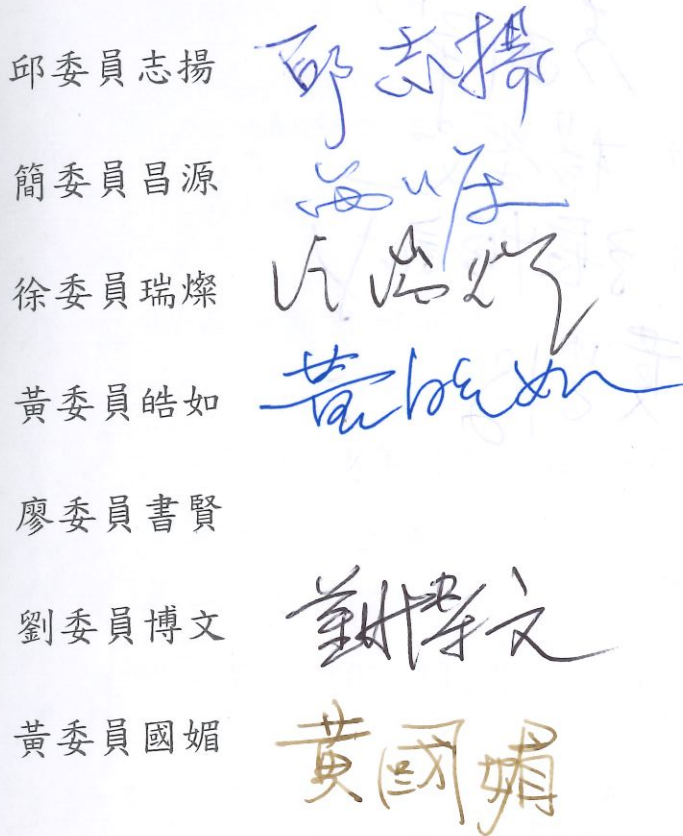 邱委員志揚 邱志揚
簡委員昌源
徐委員瑞燦 徐瑞燦
黃委員皓如 黃皓如
廖委員書賢
劉委員博文 劉博文
黃委員國媚 黃國媚